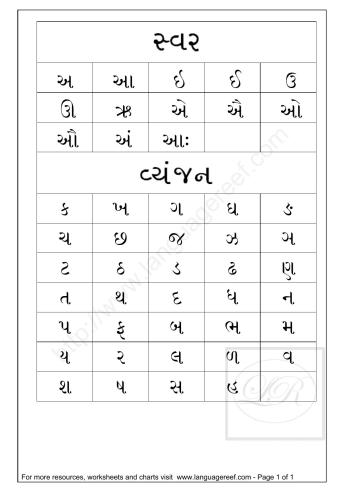 સ્વર
અ આ ઇ ઈ ઉ
ઊ ઋ એ ઐ ઓ
ઔ અં આઃ
વ્યંજન
ક ખ ગ ઘ ઙ
ચ છ જ ઝ ઞ
ટ ઠ ડ ઢ ણ
ત થ દ ધ ન
પ ફ બ ભ મ
ય ર લ ળ વ
શ ષ સ હ
http://www.languagereef.com
LR
For more resources, worksheets and charts visit www.languagereef.com - Page 1 of 1